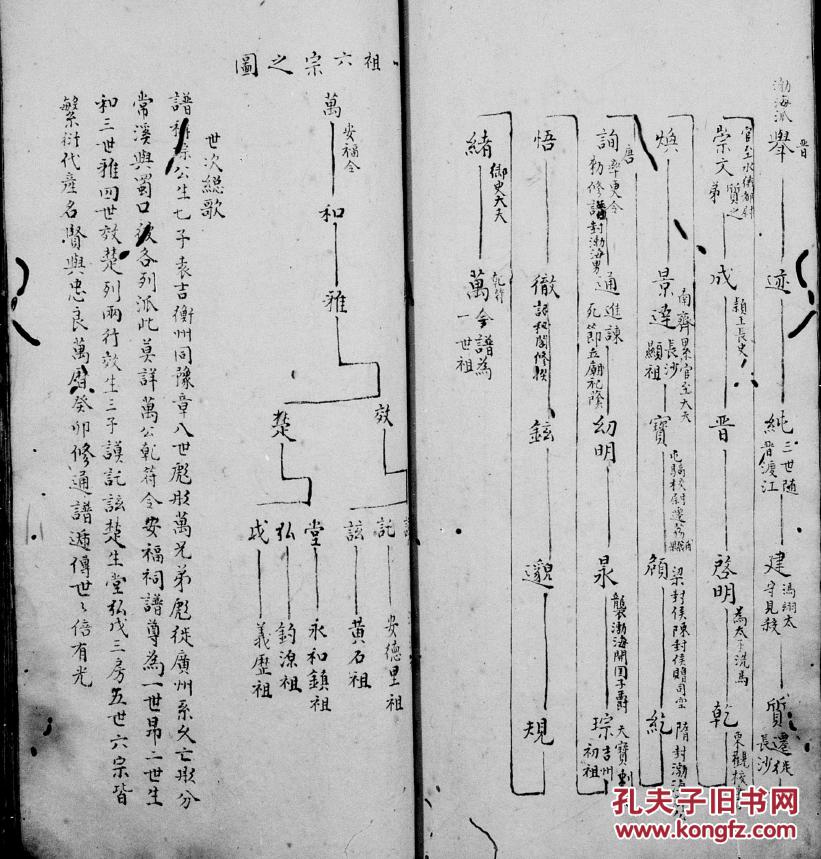 渤海派
晋
舉
迹
純 三世随晋渡江
建 馮翊太守見殺
質 遷徙長沙
崇文 質之弟
成 穎上長史
晋
啓明 為太子洗馬
乾
煥
景達 南齊累官至大夫 長沙顯祖
寶
頠 梁封侯陳封侯贈司空
紇
唐
詢 率更令 勅修譜封渤海男
通 進諫死節立廟祀廕
幼明
昶 襲渤海開国子爵
琮 天寶刺吉州 初祖
悟
徹
鉉
邈
規
緒 御史大夫
萬 乾符 今譜為一世祖
祖六宗之圖
萬 安福令
和
雅
效
楚
託 安德里祖
詃 黄石祖
堂 永和鎮祖
弘 鈞源祖
戊 義歷祖
世次總歌
譜稱琮公生七子袁吉衡州同豫章八世彪肜萬兄弟彪徙廣州系久亡肜分
常溪與蜀口後各列派此莫詳萬公乾符令安福祠譜尊為一世昂二世生
和三世雅四世效楚列兩行效生三子謨託詃楚生堂弘戊三房五世六宗皆
繁衍代產名賢與忠良萬曆癸卯修通譜遞傳世々倍有光
孔夫子旧书网
www.kongfz.com